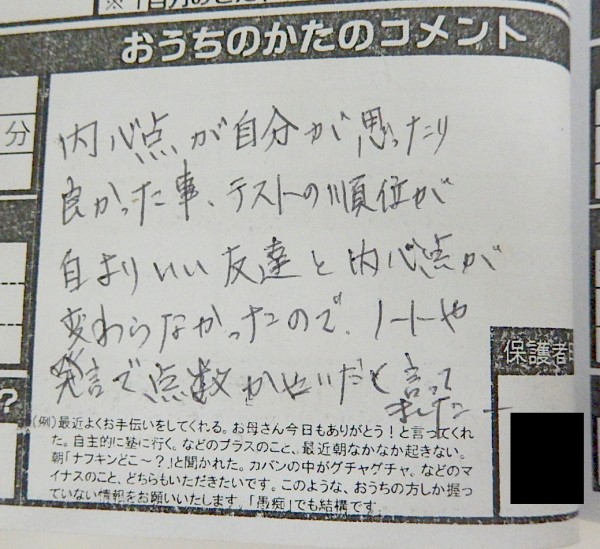 おうちのかたのコメント
分
内心点が自分が思ったり
良かった事、テストの順位が
自よりいい友達と内心点が
変わらなかったので、ノートや
発言で点数かせいだと言って
ましたー
保護者
?
(例)最近よくお手伝いをしてくれる。お母さん今日もありがとう!と言ってくれ
た。自主的に塾に行く。などのプラスのこと、最近朝なかなか起きない。
朝「ナフキンどこ〜?」と聞かれた。カバンの中がグチャグチャ。などのマ
イナスのこと、どちらもいただきたいです。このような、おうちの方しか握っ
ていない情報をお願いいたします。「愚痴」でも結構です。